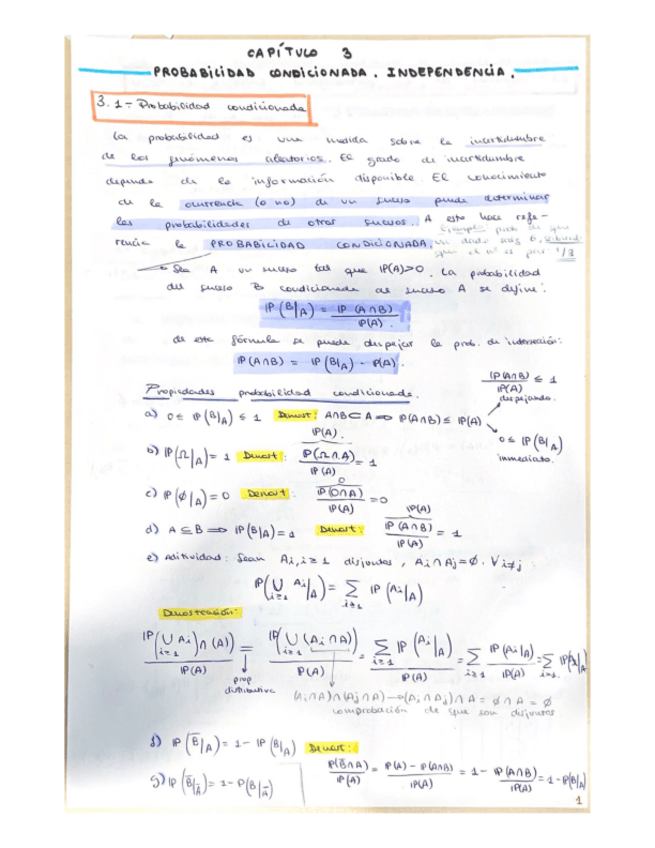 CAPÍTULO 3
PROBABILIDAD CONDICIONADA. INDEPENDENCIA.
3.1- Probabilidad condicionada
La probabilidad es una medida sobre la incertidumbre
de los fenómenos aleatorios. El grado de incertidumbre
depende de la información disponible. El conocimiento
de la ocurrencia (o no) de un suceso puede determinar
las probabilidades de otros sucesos. A esto hace refe-
rencia la PROBABILIDAD CONDICIONADA.
Ejemplo: prob de que
un dado salga 6, sabiendo
que el nº es par: 1/3
Sea A un suceso tal que IP(A)>0. La probabilidad
del suceso B condicionada al suceso A se define:
IP(B|A) = IP(A∩B) / IP(A).
de esta fórmula se puede despejar la prob. de intersección:
IP(A∩B) = IP(B|A) · IP(A).
Propiedades probabilidad condicionada.
IP(A∩B) / IP(A) ≤ 1
despejando.
a) 0 ≤ IP(B|A) ≤ 1 Demost: A∩B⊂A ⟹ IP(A∩B) ≤ IP(A)
0 ≤ IP(B|A)
inmediato.
b) IP(Ω|A) = 1 Demost: IP(A). IP(Ω∩A) / IP(A) = 1
c) IP(∅|A) = 0 Demost: 0 IP(∅∩A) / IP(A) = 0
d) A ⊆ B ⟹ IP(B|A) = 1 Demost: IP(A) IP(A∩B) / IP(A) = 1
e) Aditividad: Sean Ai, i≥1 disjuntos, Ai∩Aj = ∅. ∀i≠j
IP(∪ i≥1 Ai|A) = Σ i≥1 IP(Ai|A)
Demostración:
IP((∪ i≥1 Ai)∩(A)) / IP(A) = IP(∪ i≥1 (Ai∩A)) / IP(A) = Σ i≥1 IP(Ai|A) / IP(A) = Σ i≥1 IP(Ai|A) / IP(A) = Σ i≥1
prop
distributiva
(Ai∩A)∩(Aj∩A) → (Ai∩Aj)∩A = ∅∩A = ∅
comprobación de que son disjuntos
f) IP(B̅|A) = 1 - IP(B|A) Demost:
IP(B̅∩A) / IP(A) = IP(A) - IP(A∩B) / IP(A) = 1 - IP(A∩B) / IP(A) = 1 - IP(B|A)
g) IP(B̅|A̅) = 1 - P(B|A̅)
1